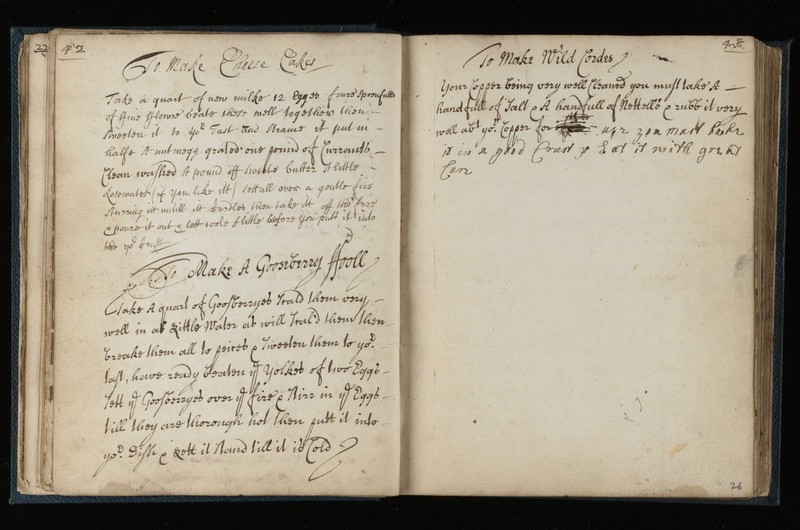 22
42
To Make Cheese Cakes
Take a quart of new milke 12 Egges foure sponfulls
of fine flowre beate these well together then
sweeten it to yor Tast And straine it put in
halfe A nutmegg grated one pound of Currants
Clean washed A pound off sweete butter A little
Rosewater (if you like itt) sett all over a gentle fire
sturring itt untill itt kurdles then take itt off the fire
& poure it out & lett coole A little before you putt it into
yor
To Make A Goosberry ffooll
Take A quart of Goosberryes scald them very
well in as Little Water as will scal'd them then
breake them all to peices & sweeten them to yor
tast, have ready beaten ye yolkes of two Eggs
sett ye Goosberryes over ye fire & stirr in ye Eggs
till they are thorough hot then putt it into
yor Dish & Lett it stand till it is Cold
To Make Wild Cordes
Your Copper being very well Cleaned you must take A
handfull of Salt & A handfull of Nettells & rubb it very
well abt yor Copper for
it in a good & it with great
Care
26